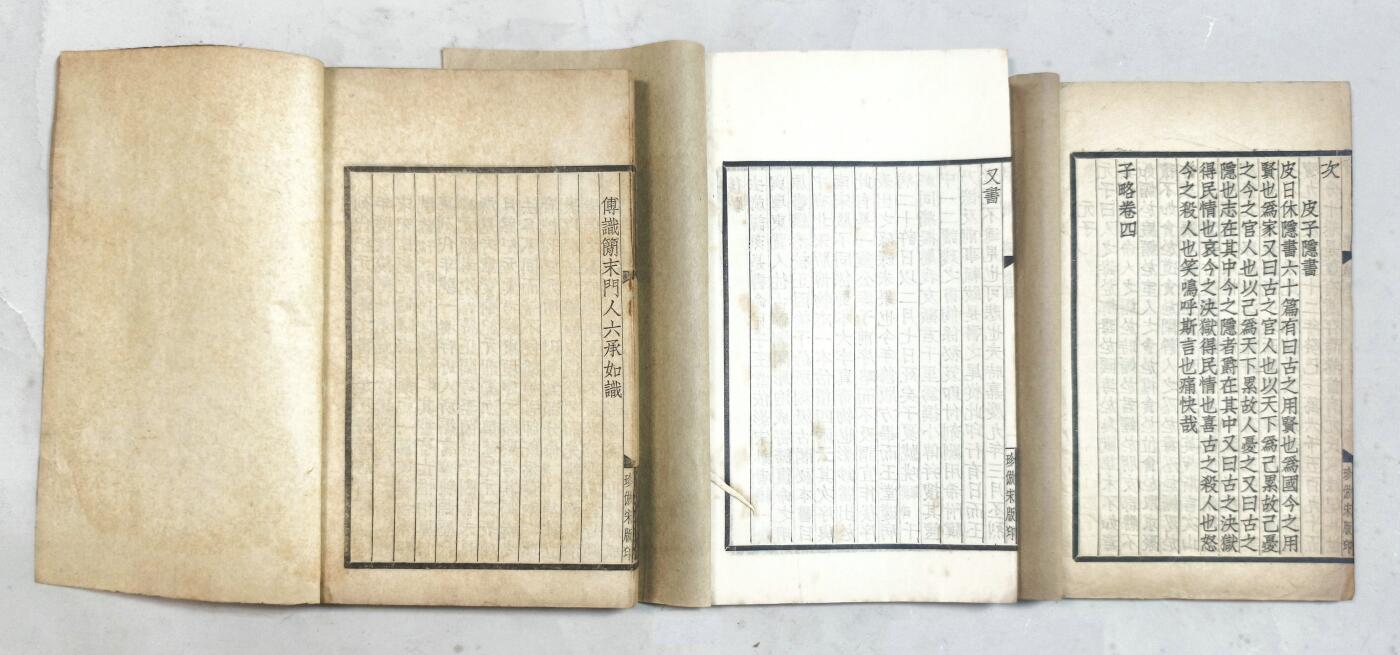 次
皮子隱書
皮日休隱書六十篇有曰古之用賢也爲國今之用
賢也爲家又曰古之官人也以天下爲己累故己憂
之今之官人也以己爲天下累故人憂之又曰古之
隱也志在其中今之隱者爵在其中又曰古之決獄
得民情也哀今之決獄得民情也喜古之殺人也怒
今之殺人也笑嗚呼斯言也痛快哉
子略卷四
珍倣宋版印
又書
珍倣宋版印
傳識簡末門人六承如識
珍倣宋版印